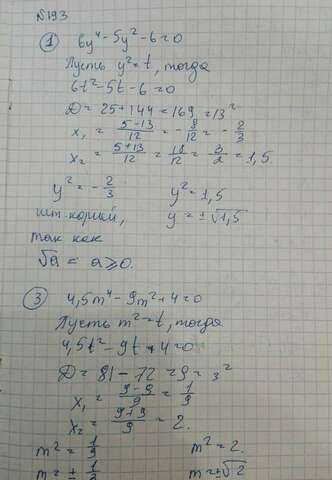 №193
① 6y⁴ - 5y² - 6 = 0
Пусть y² = t, тогда
6t² - 5t - 6 = 0
D = 25 + 144 = 169 = 13²
x₁ = (5-13)/12 = -8/12 = -2/3
x₂ = (5+13)/12 = 18/12 = 3/2 = 1,5
y² = -2/3 y² = 1,5
нет корней, y = ±√1,5
так как
√a = a ≥ 0.
③ 4,5m⁴ - 9m² + 4 = 0
Пусть m² = t, тогда
4,5t² - 9t + 4 = 0
D = 81 - 72 = 9 = 3²
x₁ = (9-9)/9 = 1/9
x₂ = (9+9)/9 = 2.
m² = 1/9 m² = 2.
m = ± 1/3 m = ±√2